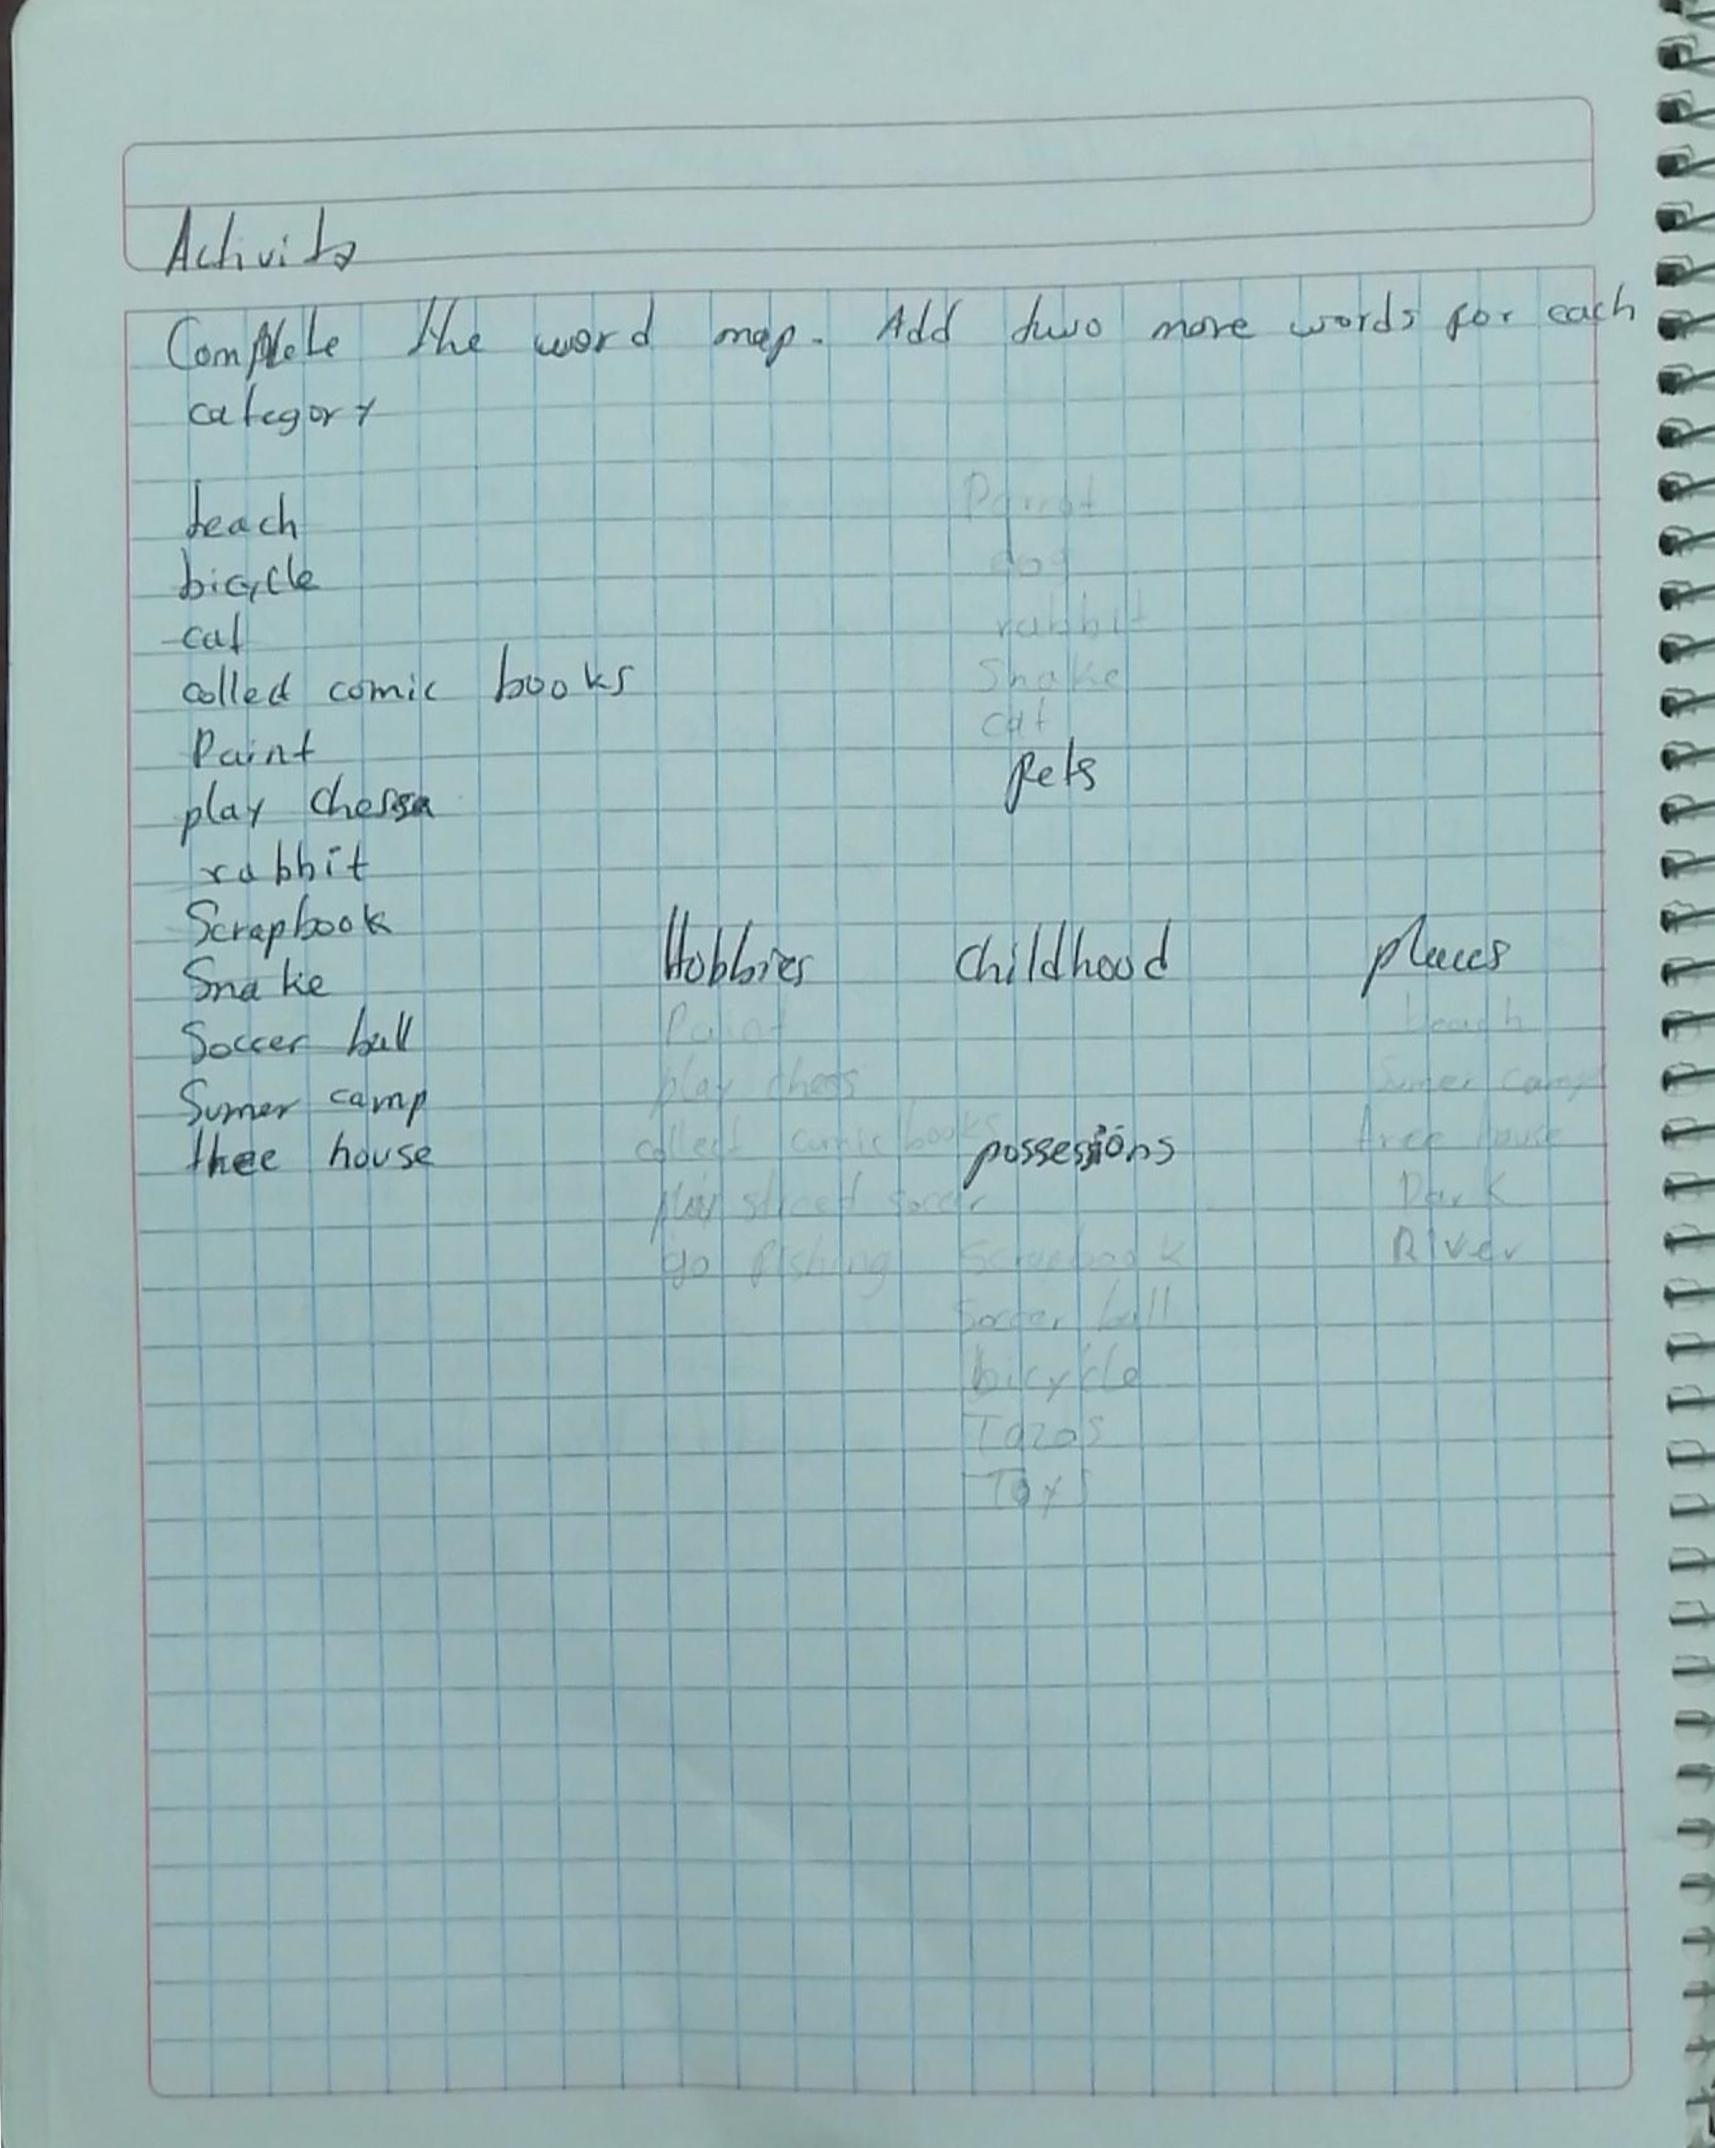 Activity
Complete the word map. Add two more words for each
category
beach
bicycle
cat
collect comic books
Paint
play chess
rabbit
Scrapbook
Snake
Soccer ball
Sumer camp
thee house
Parrot
dog
rabbit
Snake
cat
Pets
Hobbies
Paint
play chess
collect comic books
play street soccer
go fishing
childhood
possessions
Scrapbook
Soccer ball
bicycle
Tazos
Toys
places
beach
Sumer camp
tree house
Park
River